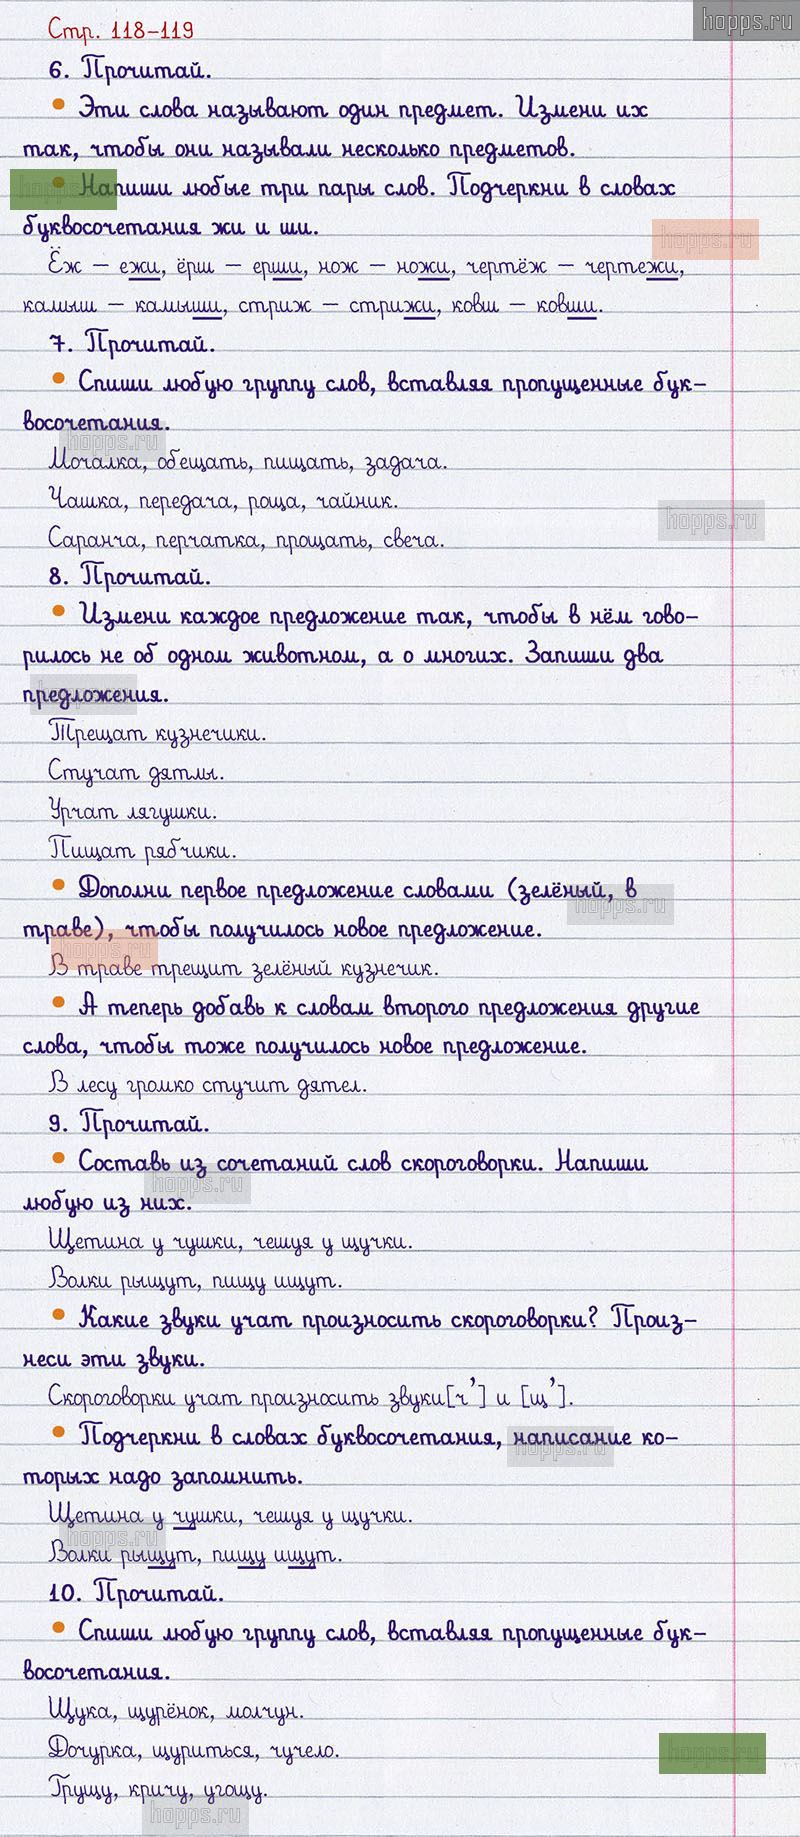 hopps.ru
Стр. 118-119
6. Прочитай.
• Эти слова называют один предмет. Измени их
так, чтобы они называли несколько предметов.
• Напиши любые три пары слов. Подчеркни в словах
буквосочетания жи и ши.
hopps.ru
hopps.ru
Ёж – ежи, ёрш – ерши, нож – ножи, чертёж – чертежи,
камыш – камыши, стриж – стрижи, ковш – ковши.
7. Прочитай.
• Спиши любую группу слов, вставляя пропущенные бук-
восочетания.
hopps.ru
Мочалка, обещать, пищать, задача.
Чашка, передача, роща, чайник.
hopps.ru
Саранча, перчатка, прощать, свеча.
8. Прочитай.
• Измени каждое предложение так, чтобы в нём гово-
рилось не об одном животном, а о многих. Запиши два
предложения.
hopps.ru
Трещат кузнечики.
Стучат дятлы.
Урчат лягушки.
Пищат рябчики.
• Дополни первое предложение словами (зелёный, в
hopps.ru
траве), чтобы получилось новое предложение.
hopps.ru
В траве трещит зелёный кузнечик.
• А теперь добавь к словам второго предложения другие
слова, чтобы тоже получилось новое предложение.
В лесу громко стучит дятел.
9. Прочитай.
• Составь из сочетаний слов скороговорки. Напиши
hopps.ru
любую из них.
Щетина у чушки, чешуя у щучки.
Волки рыщут, пищу ищут.
• Какие звуки учат произносить скороговорки? Произ-
неси эти звуки.
Скороговорки учат произносить звуки[ч'] и [щ'].
• Подчеркни в словах буквосочетания, написание ко-
hopps.ru
торых надо запомнить.
Щетина у чушки, чешуя у щучки.
hopps.ru
Волки рыщут, пищу ищут.
10. Прочитай.
• Спиши любую группу слов, вставляя пропущенные бук-
восочетания.
Щука, щурёнок, молчун.
Дочурка, щуриться, чучело.
hopps.ru
Грущу, кричу, угощу.
hopps.ru